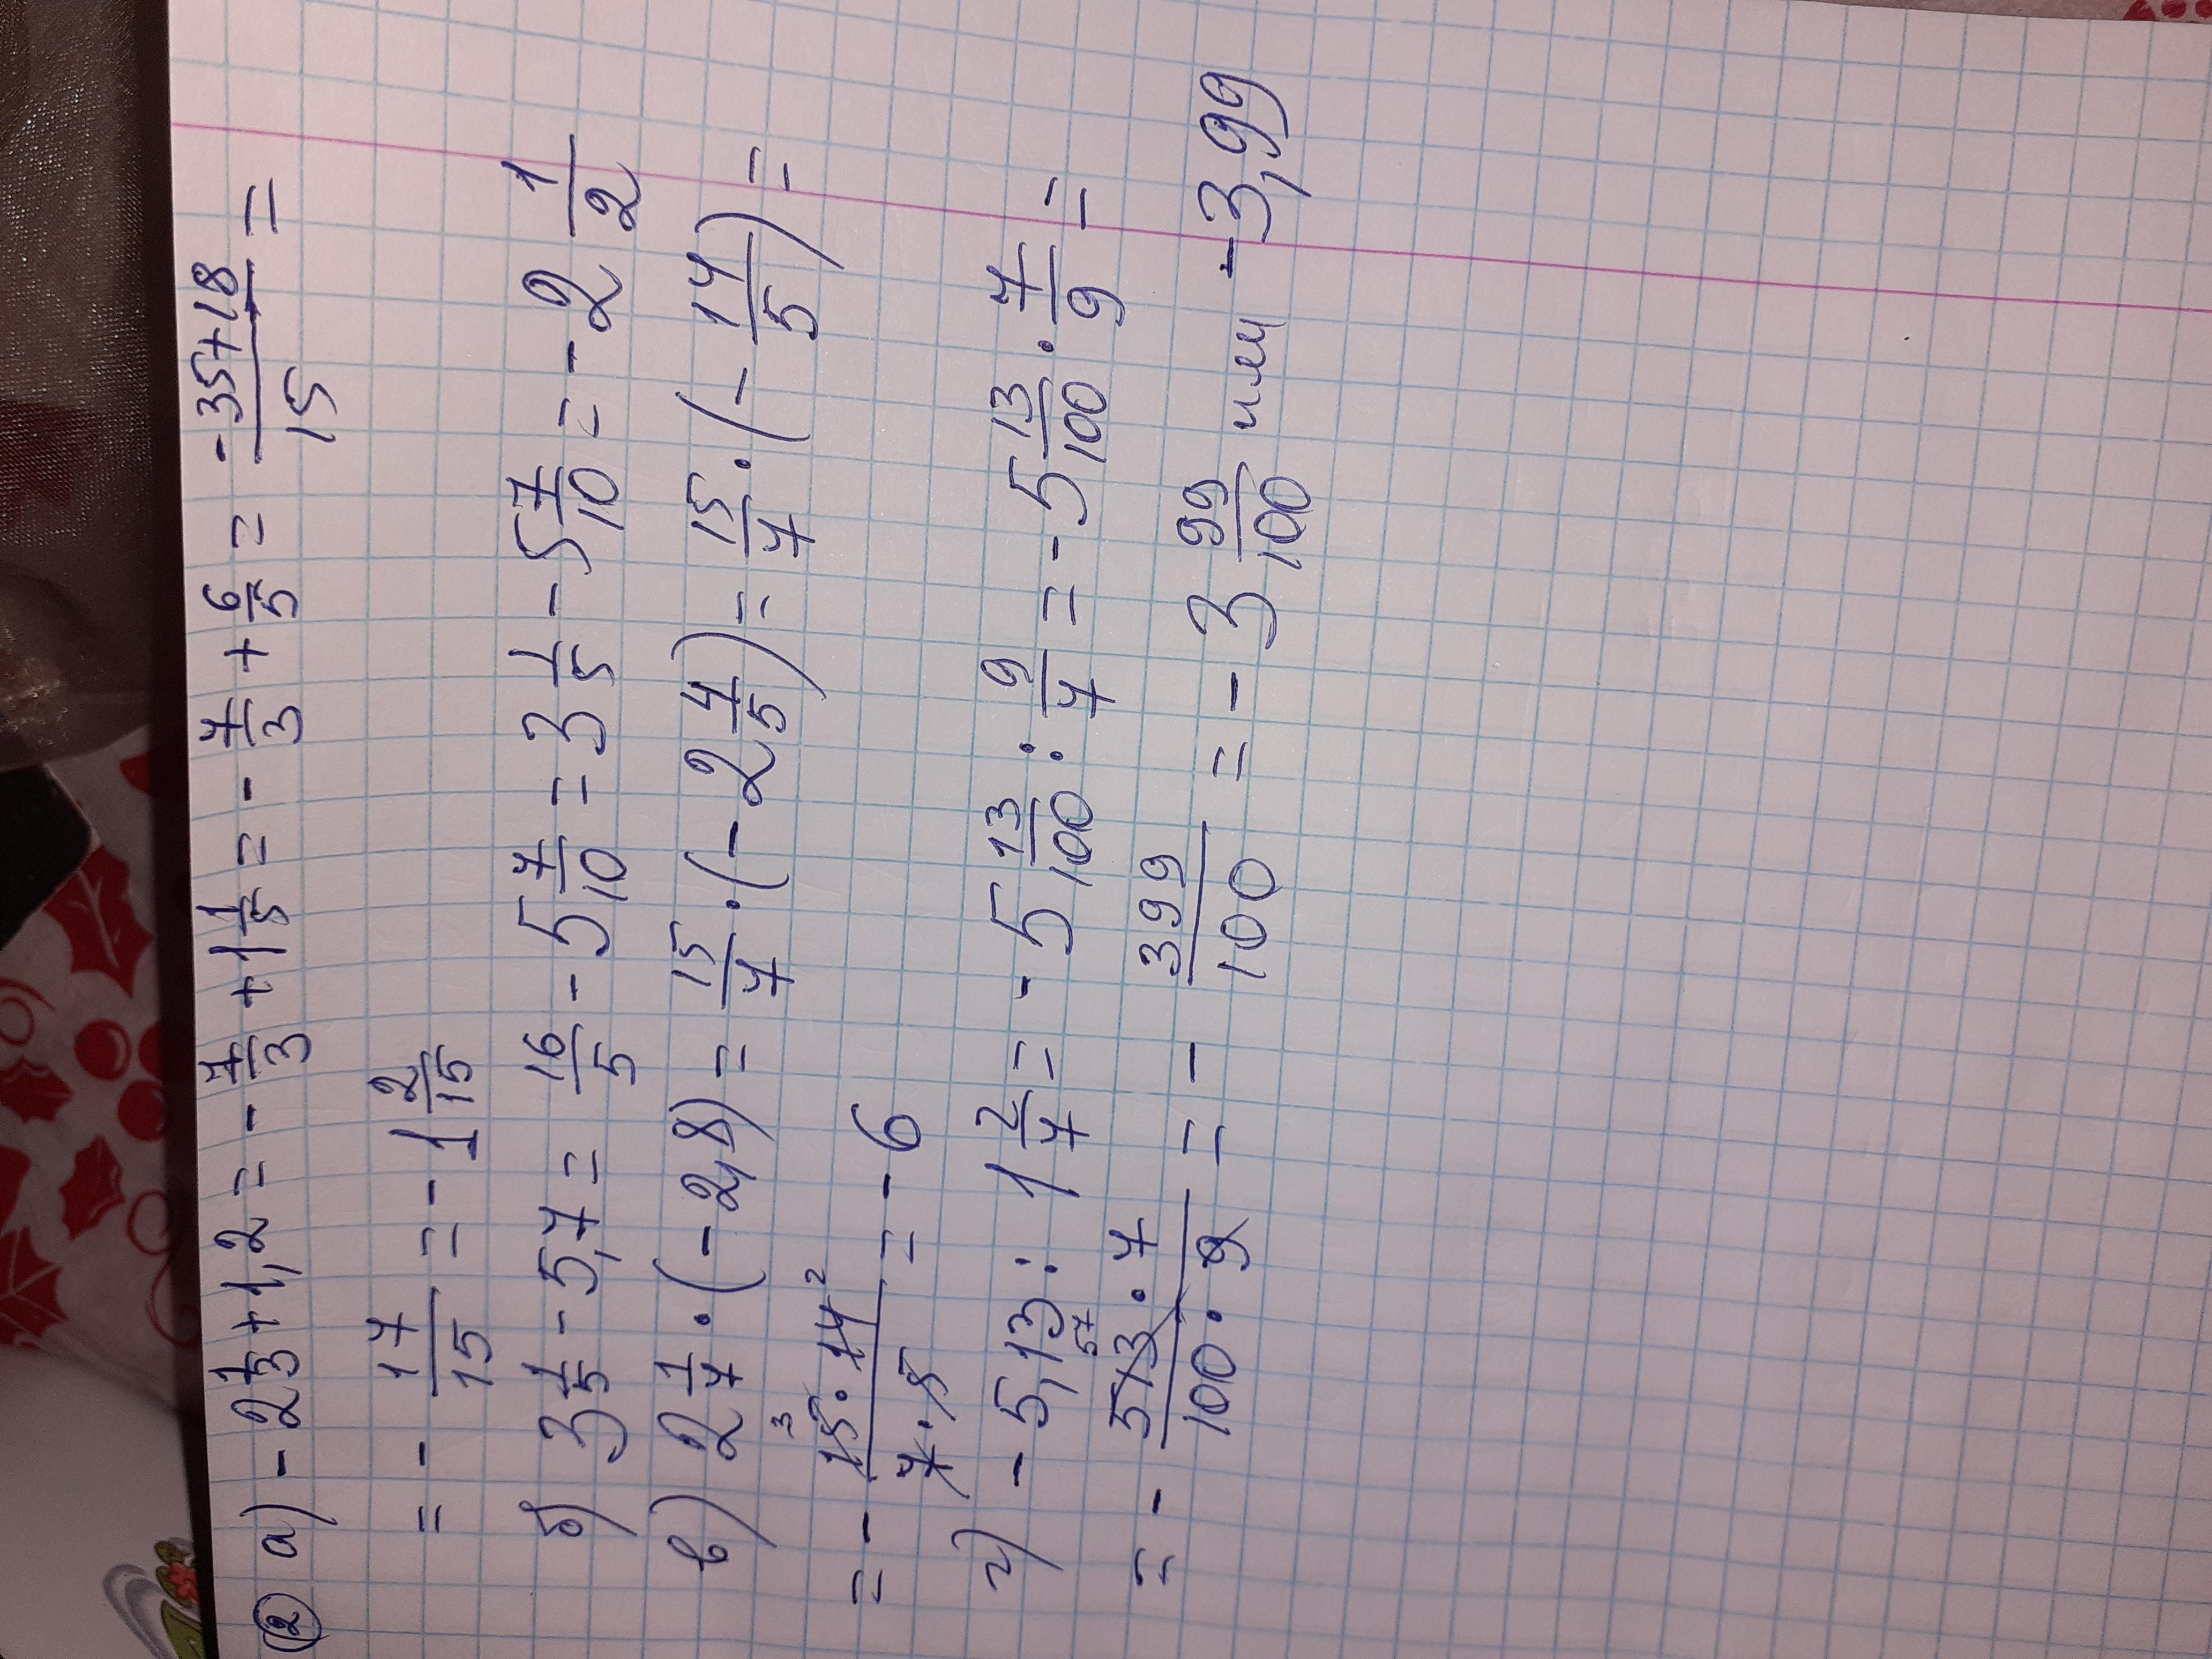 ② а) - 2 1/3 + 1,2 = - 7/3 + 1 1/5 = - 7/3 + 6/5 = (-35+18)/15 =
= - 17/15 = - 1 2/15
б) 3 1/5 - 5,7 = 16/5 - 5 7/10 = 3 1/5 - 5 7/10 = - 2 1/2
в) 2 1/7 · (- 2,8) = 15/7 · (- 2 4/5) = 15/7 · (- 14/5) =
= - (15³ · 14²)/(7 · 5) = - 6
г) - 5,13 : 1 2/7 = - 5 13/100 : 9/7 = - 5 13/100 · 7/9 =
= - (513⁵⁷ · 7)/(100 · 9) = - 399/100 = - 3 99/100 или - 3,99